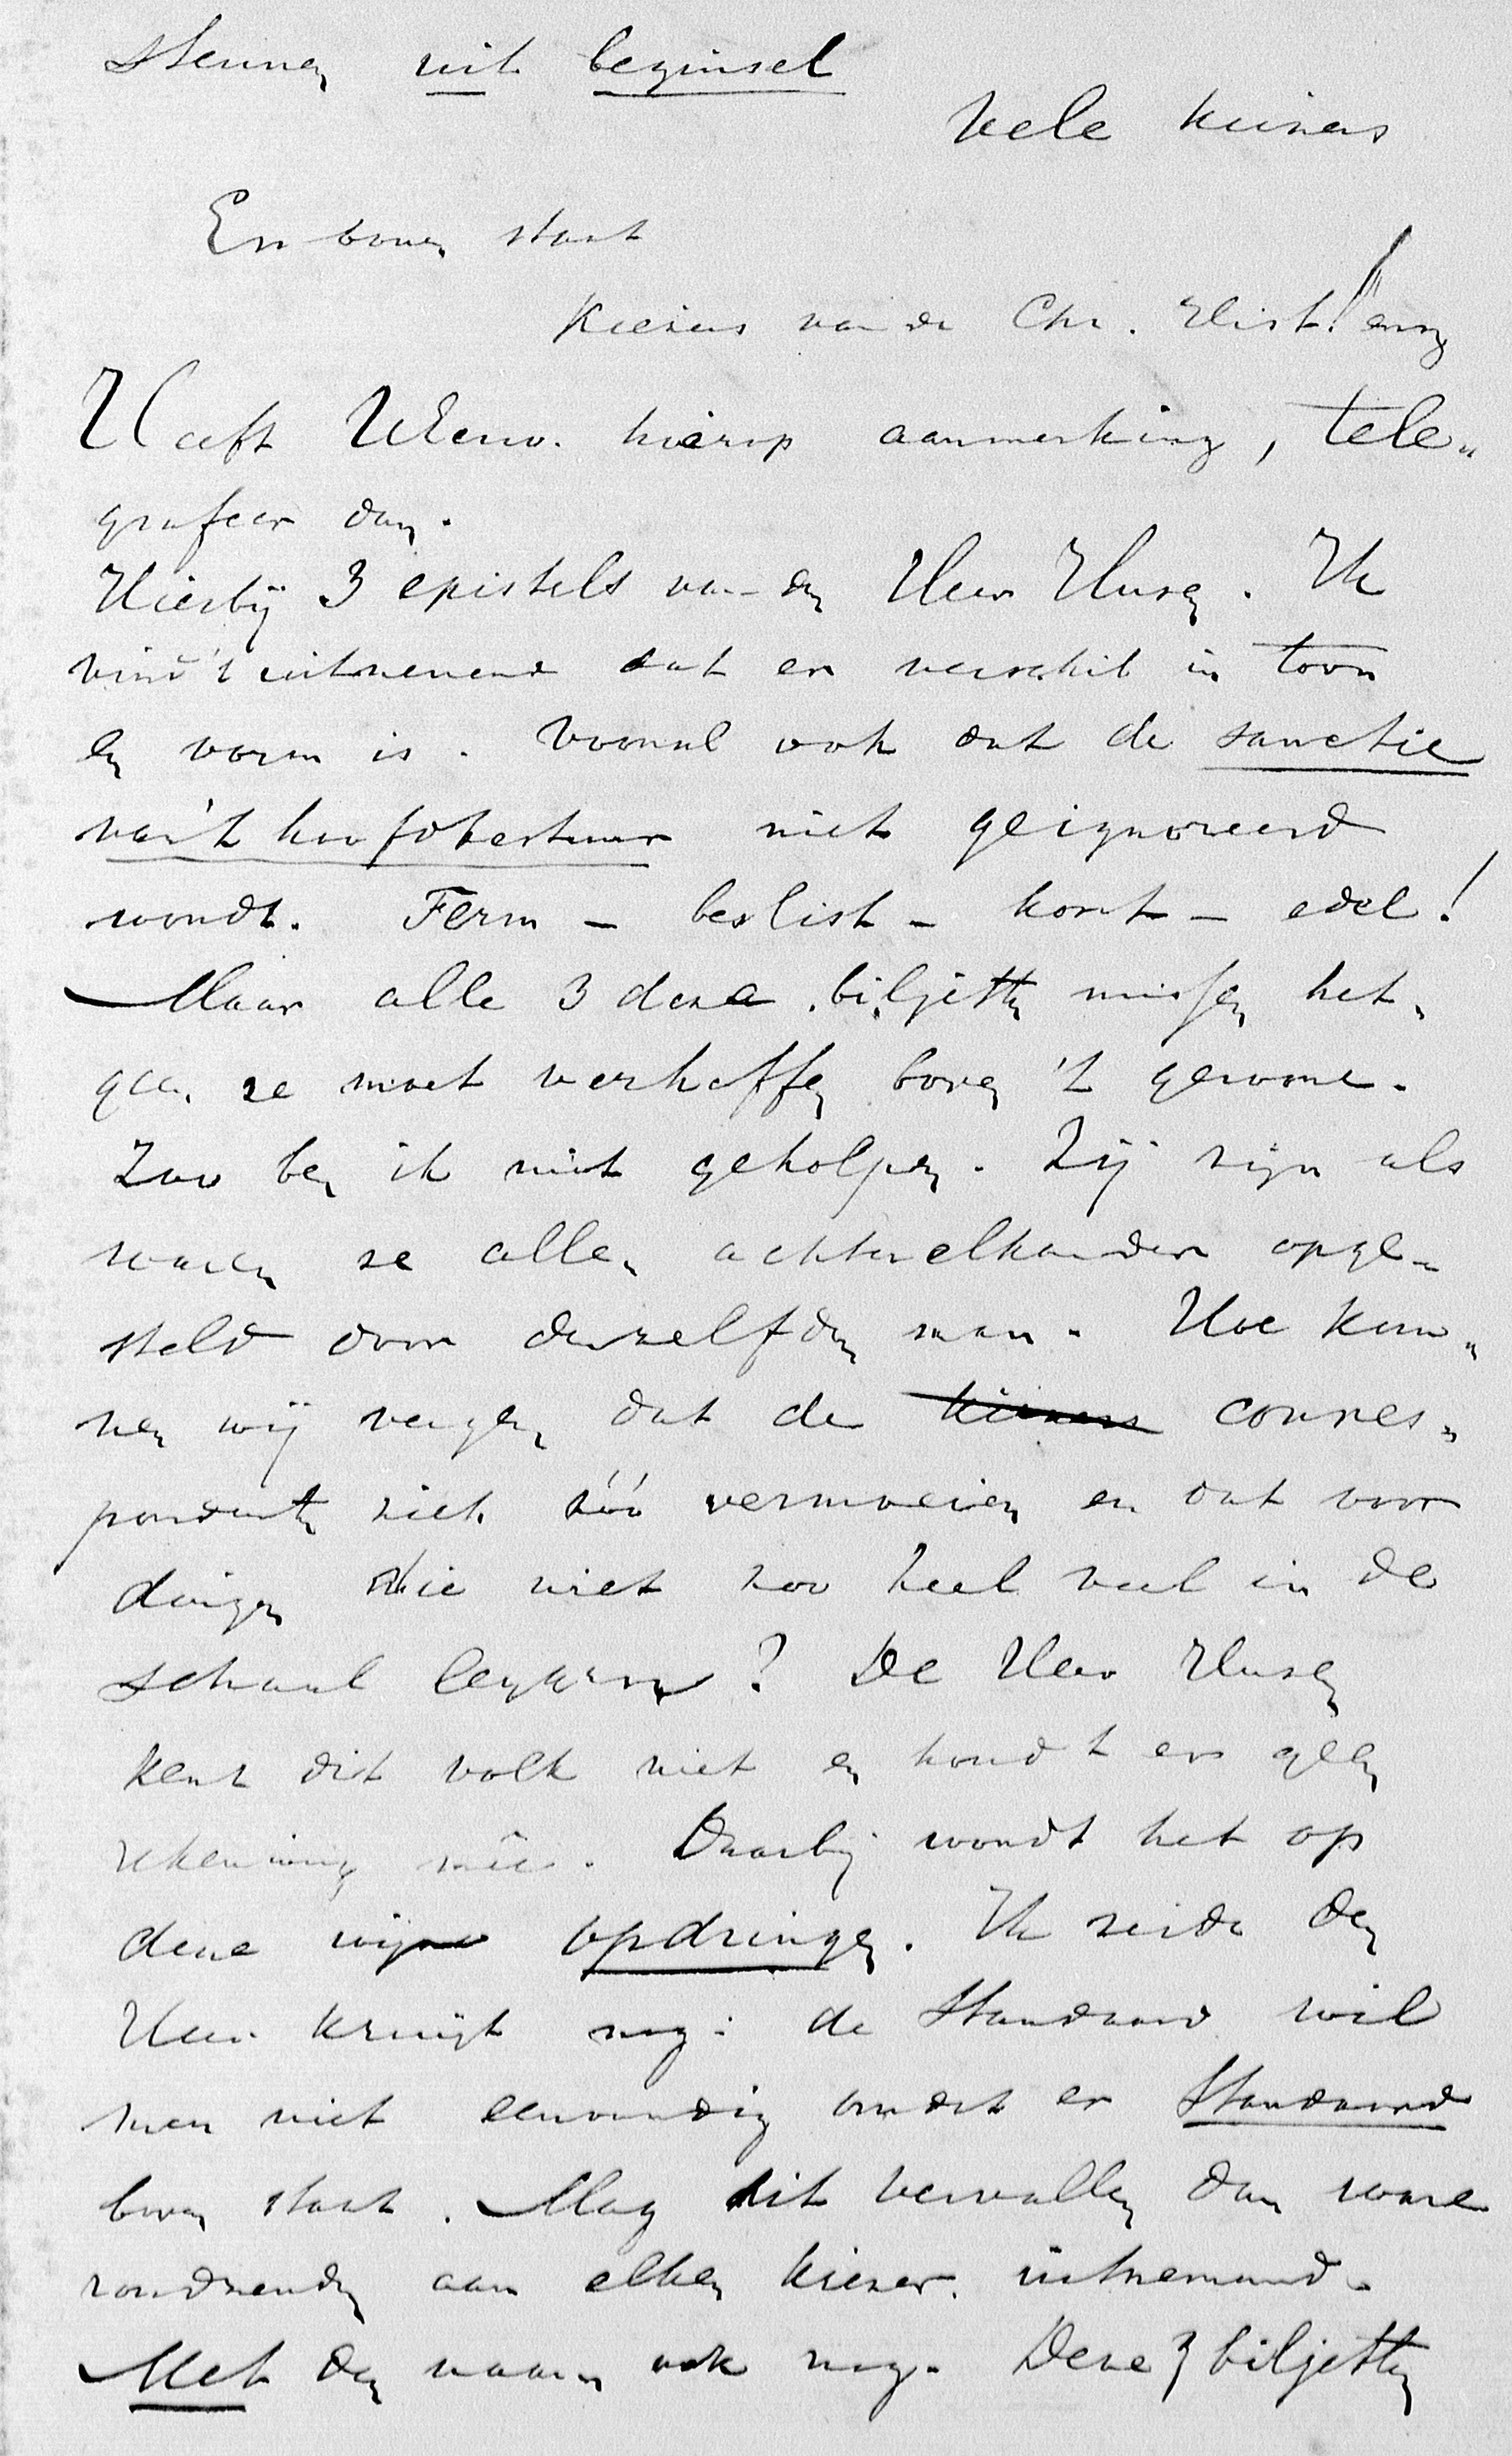 Stemmen uit beginsel
Vele kiezers
En boven staat
Kiezers van de Chr. Hist! enz
Heeft UEerw. hierop aanmerking, tele„
grafeer dan.
Hierbij 3 epistels van den Heer Husen. Ik
vind 't uitnemend dat er verschil in toon
en vorm is. Vooral ook dat de sanctie
van 't hoofdbestuur niet geignoreerd
wordt. Ferm – beslist – kort – edel!
Maar alle 3 deze biljetten missen het„
geen ze moet verheffen boven 't gewone.
Zoo ben ik niet geholpen. Zij zijn als
waren ze allen achterelkander opge„
steld door denzelfden man. Hoe kun„
nen wij vergen dat de kiezers corres„
pondenten zich zóó vermoeien en dat voor
dingen die niet zoo heel veel in de
schaal leggen? De Heer Husen
kent dit volk niet en houdt er geen
rekening mêe. Daarbij wordt het op
deze wijze opdringen. Ik zeide den
Heer Kruijt nog: de Standaard wil
men niet eenvoudig omdat er Standaard
boven staat. Mag dit vervallen dan ware
rondzenden aan elken kiezer uitnemend.
Met den naam ook nog. Deze 3 biljetten